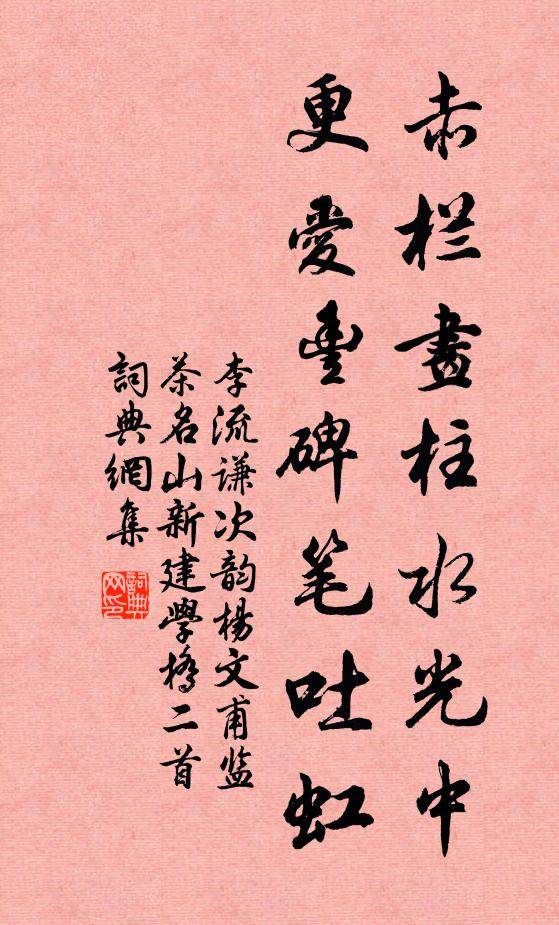 赤栏畫柱水光中
更愛豐碑笔吐虹
李流谦次韵楊文甫监
茶名山新建學橋二首
詞典網集
詞典網印